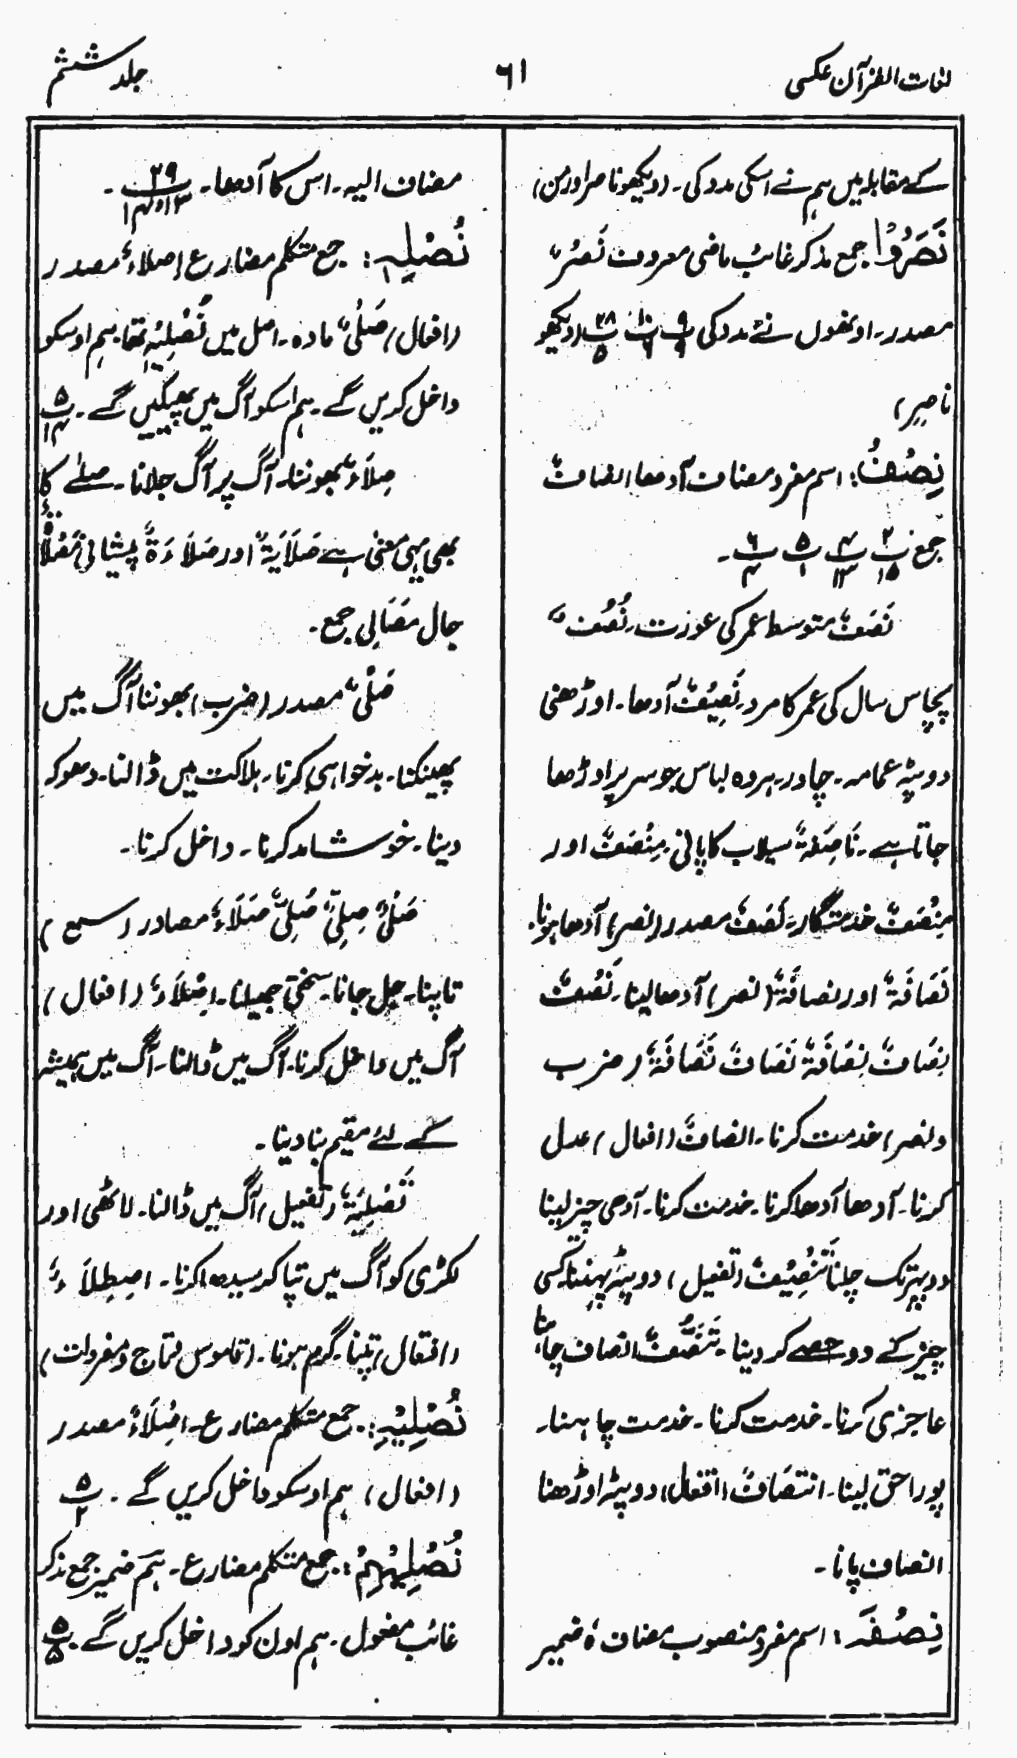 لغات القرآن عکسی
۶۱
جلد ششم
کے مقابلہ میں ہم نے اسکی مدد کی۔ (دیکھو ناصر اور من)
نَصَرُوْا جمع مذکر غائب ماضی معروف نَصْرٌ
مصدر۔ اونھوں نے مدد کی پ ۹ ۹ پ ۱۰ ۶ پ ۲۸ ۵ (دیکھو
ناصِر)
نِصْفُ: اسم مفرد مضاف آدھا انصافٌ
جمع پ ۲ ۱۵ پ ۴ ۱۳ پ ۵ ۱ پ ۶ ۴ ۔
نَصَفٌ متوسط عمر کی عورت۔ نُصُفٌ
پچاس سال کی عمر کا مرد۔ نَصِیْفٌ آدھا۔ اوڑھنی
دوپٹہ عمامہ۔ چادر۔ ہر وہ لباس جو سر پر اوڑھا
جاتا ہے۔ نَاصِفَةٌ سیلاب کا پانی۔ مِنْصَفٌ اور
مِنْصَفٌ خدمتگار۔ نَصَفٌ مصدر (نصر) آدھا ہونا۔
نَصَافَةٌ اور نصافَةٌ (نصر) آدھا لینا۔ نَصْفٌ
نِصَافٌ نِصَافَةٌ نَصَافٌ نَصَافَةٌ (ضرب
و نصر) خدمت کرنا۔ انصافٌ (افعال) عدل
کرنا۔ آدھا آدھا کرنا۔ خدمت کرنا۔ آدھی چیز لینا
دوپہر تک چلنا تَنْصِیْفٌ (تفعیل) دوپٹہ پہننا کسی
چیز کے دو حصے کر دینا۔ تَنَصُّفٌ انصاف چاہنا،
عاجزی کرنا۔ خدمت کرنا۔ خدمت چاہنا۔
پورا حق لینا۔ انتصَافٌ (افتعال) دوپٹہ اوڑھنا
انصاف پانا۔
نِصْفَہٗ: اسم مفرد منصوب مضاف ہٗ ضمیر
مضاف الیہ۔ اس کا آدھا۔ پ ۲۹ ۱۳ و ۱۴ ۔
نُصْلِہٖ: جمع متکلم مضارع اِصلاءٌ مصدر
(افعال) صَلْیٌ مادہ۔ اصل میں نُصْلِیْہِ تھا۔ ہم اوسکو
داخل کریں گے۔ ہم اسکو آگ میں پھینکیں گے۔ پ ۵ ۱۴
صِلَاءٌ بھوننا۔ آگ پر آگ جلانا۔ صلےٰ کا
بھی یہی معنی ہے صَلَایَةٌ اور صَلَاءَةٌ پیشانی مَصْلًا
جال مَصَالِی جمع۔
صَلْیٌ مصدر (ضرب) بھوننا آگ میں
پھینکنا۔ بدخواہی کرنا۔ ہلاکت میں ڈالنا۔ دھوکہ
دینا۔ خوشامد کرنا۔ داخل کرنا۔
صَلْیٌ صِلِیٌّ صُلِیٌّ صَلَاءٌ مصادر (سمع)
تاپنا۔ جل جانا۔ سختی جھیلنا۔ اِصْلَاءٌ (افعال)
آگ میں داخل کرنا۔ آگ میں ڈالنا۔ آگ میں ہمیشہ
کے لئے مقیم بنا دینا۔
تَصْلِیَةٌ (تفعیل) آگ میں ڈالنا۔ لاٹھی اور
لکڑی کو آگ میں تپا کر سیدھا کرنا۔ اصطِلَاءٌ
(افتعال) تپنا۔ گرم ہونا۔ (قاموس تماج و مفردات)
نُصْلِیْہِ: جمع متکلم مضارع۔ اِصْلَاءٌ مصدر
(افعال) ہم اوسکو داخل کریں گے۔ پ ۵ ۲
نُصْلِیْہِمْ: جمع متکلم مضارع۔ ہم ضمیر جمع مذکر
غائب مفعول۔ ہم اون کو داخل کریں گے۔ پ ۵ ۵